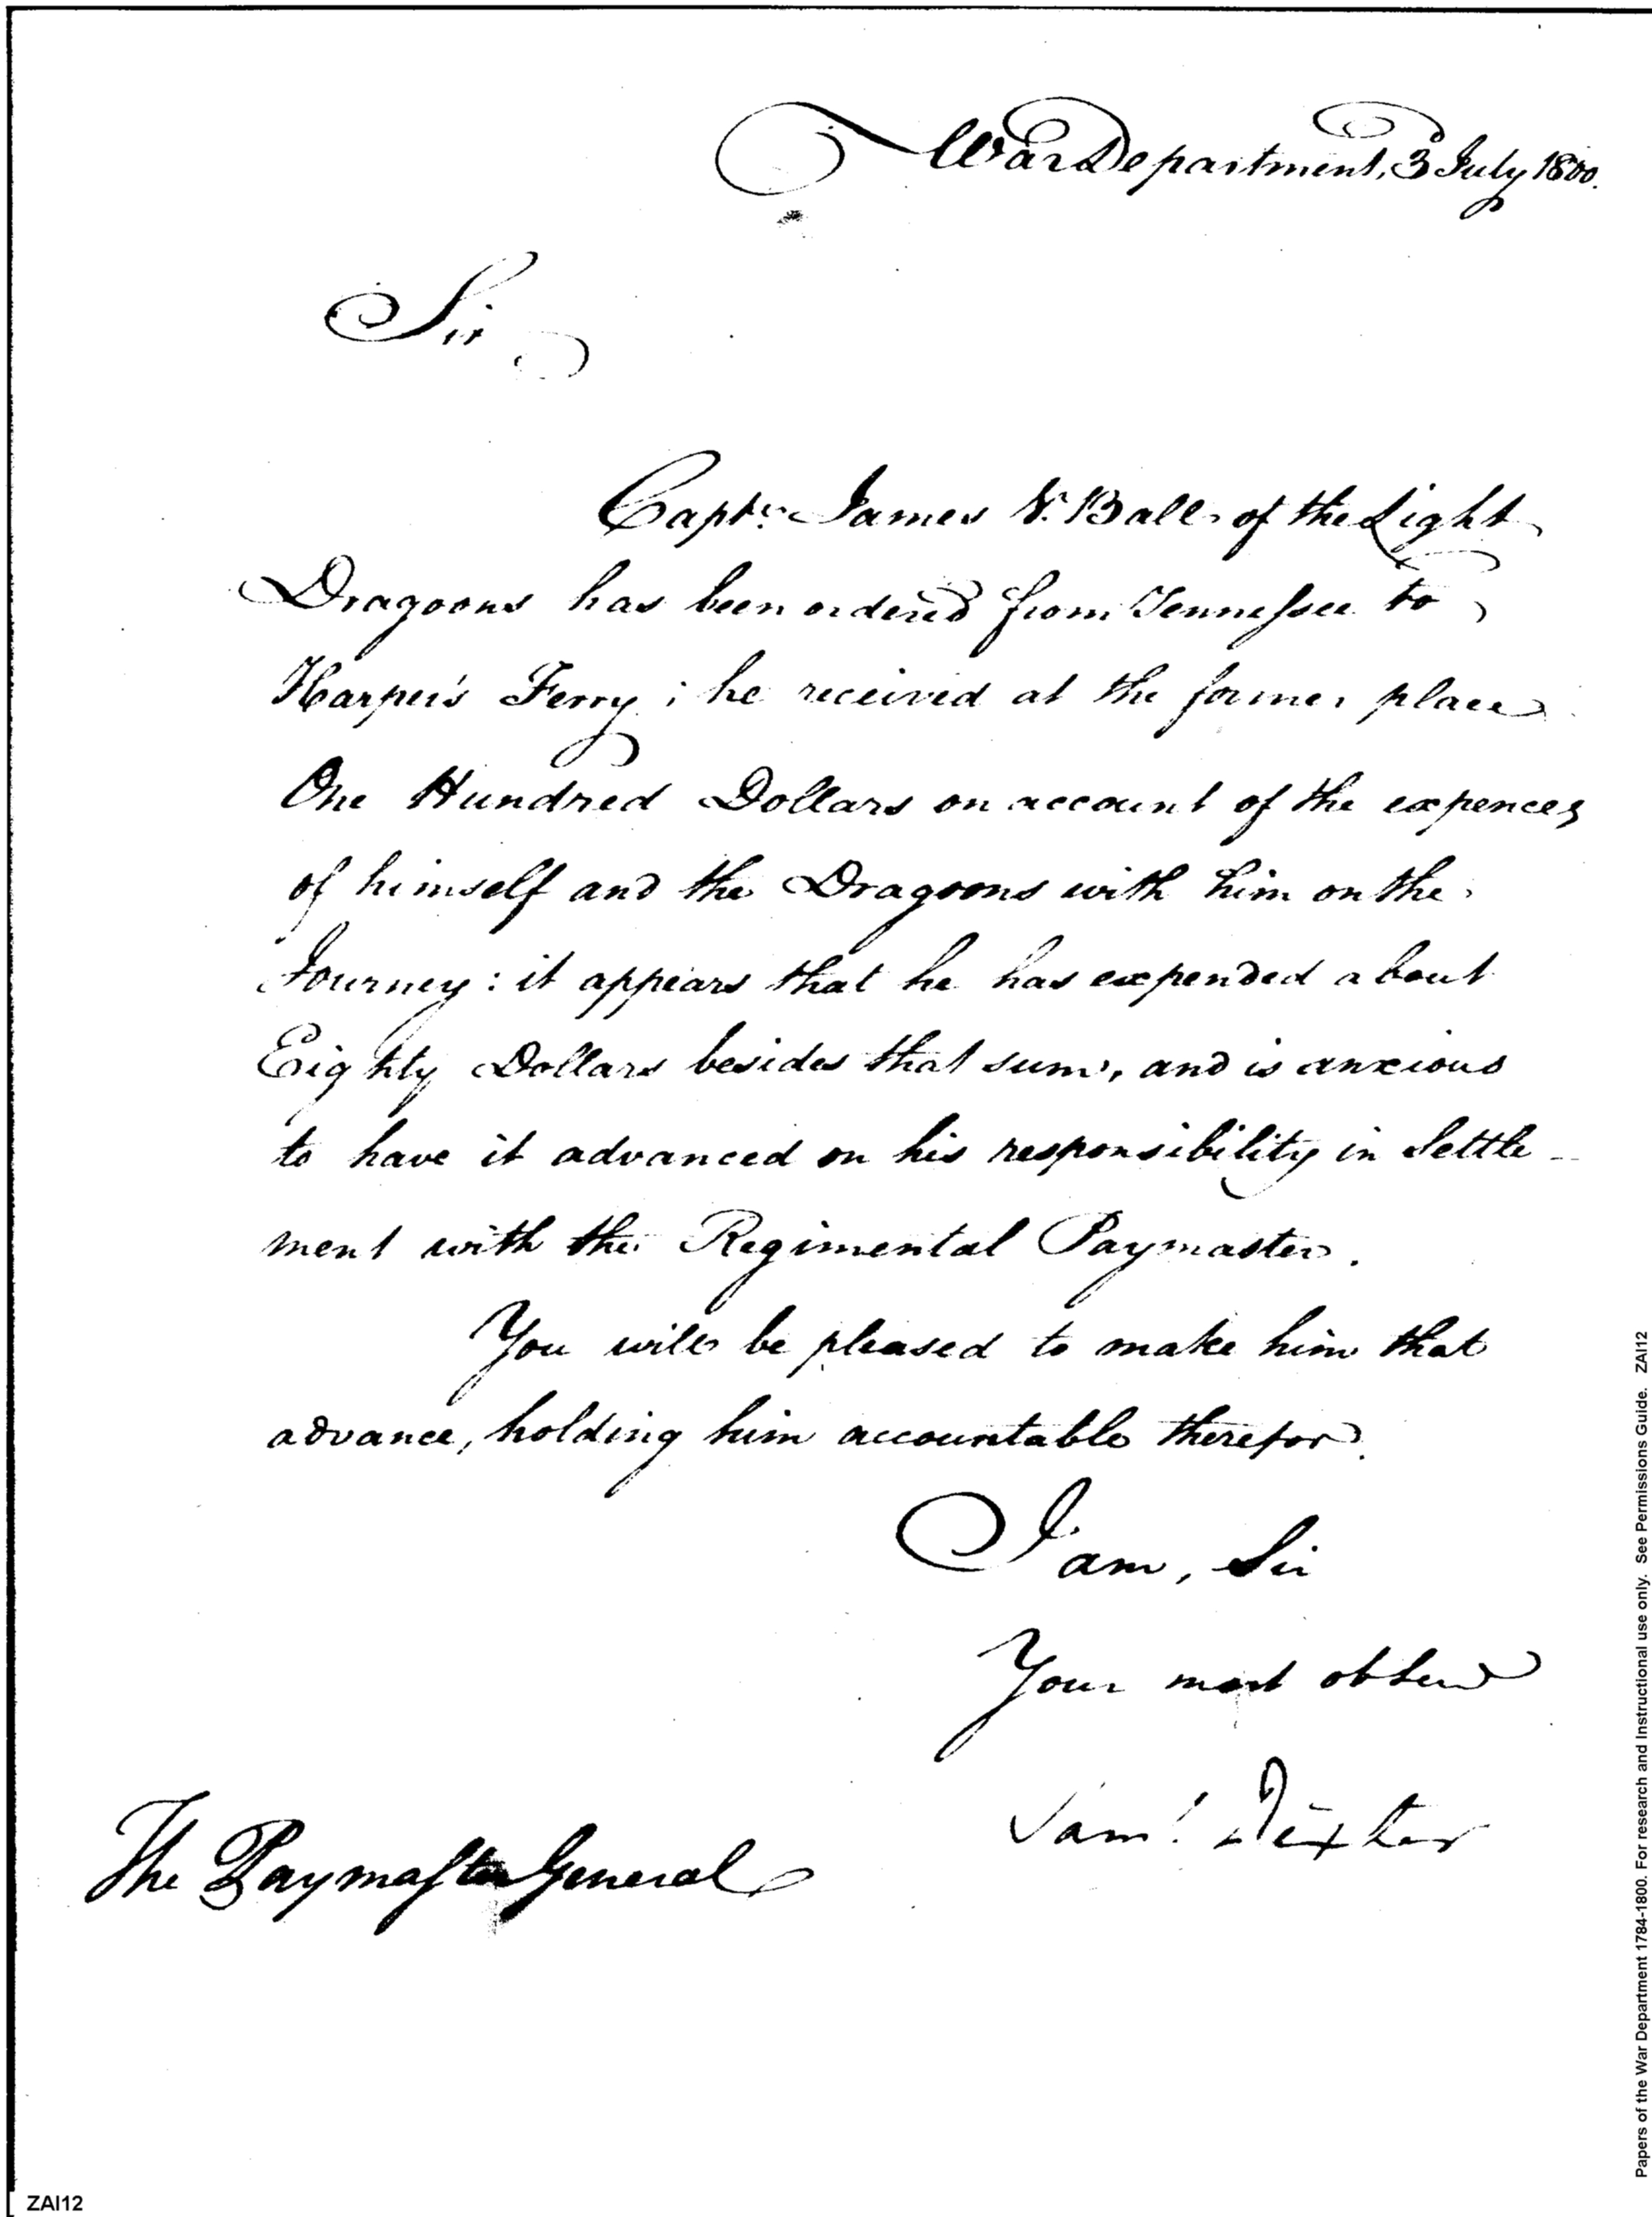 War Department, 3 July 1800.
Sir
Capt. James V. Ball of the Light
Dragoons has been ordered from Tennessee to
Harper's Ferry; he received at the former place
One Hundred Dollars on account of the expences
of himself and the Dragoons with him on the
Journey: it appears that he has expended about
Eighty Dollars besides that sum, and is anxious
to have it advanced on his responsibility in Settle-
ment with the Regimental Paymaster.
You will be pleased to make him that
advance, holding him accountable therefor.
I am, Sir
Your most obted
Saml. Dexter
The Paymaster General
ZAI12
Papers of the War Department 1784-1800. For research and Instructional use only. See Permissions Guide. ZAI12